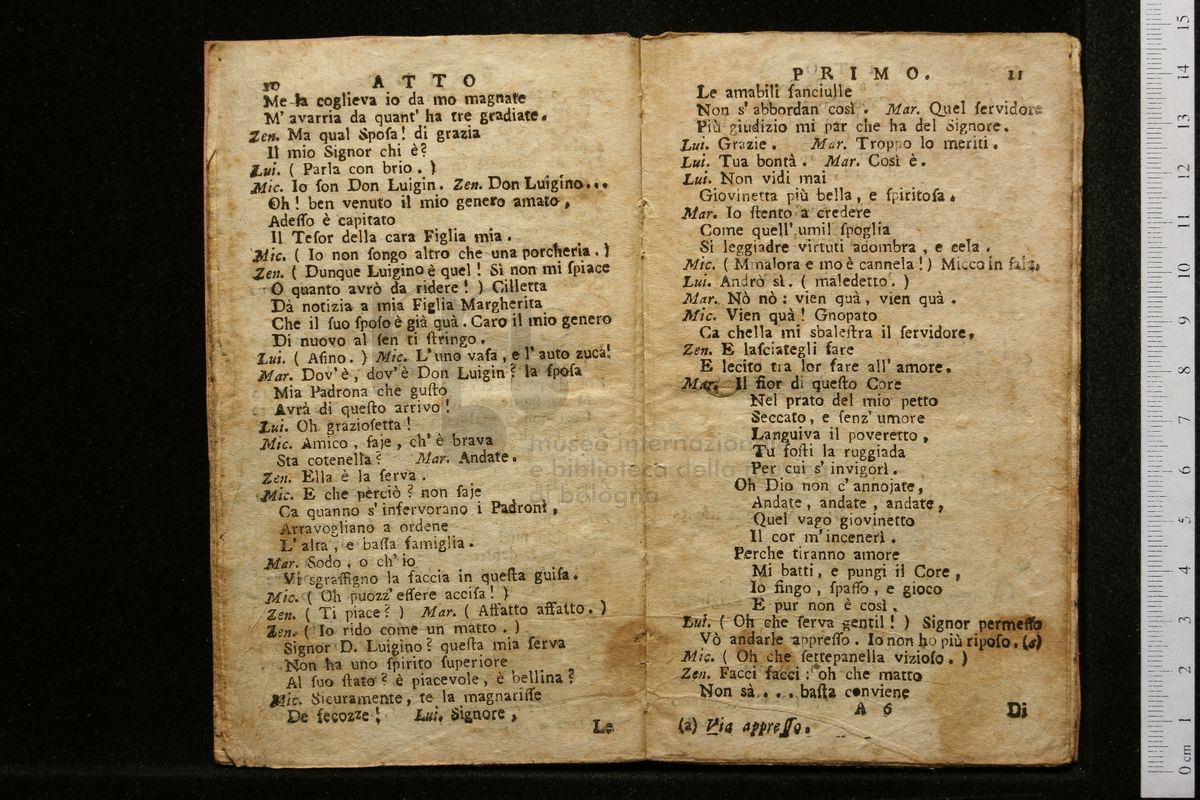 10 ATTO
Me la coglieva io da mo magnate
M' avarria da quant' ha tre gradiate.
Zen. Ma qual Sposa! di grazia
Il mio Signor chi è?
Lui. ( Parla con brio. )
Mic. Io son Don Luigin. Zen. Don Luigino...
Oh! ben venuto il mio genero amato,
Adesso è capitato
Il Tesor della cara Figlia mia.
Mic. ( Io non songo altro che una porcheria. )
Zen. ( Dunque Luigino è quel! Sì non mi spiace
O quanto avrò da ridere! ) Cilletta
Dà notizia a mia Figlia Margherita
Che il suo sposo è già quà. Caro il mio genero
Di nuovo al sen ti stringo.
Lui. ( Asino. ) Mic. L'uno vasa, e l'auto zuca!
Mar. Dov'è, dov'è Don Luigin? la sposa
Mia Padrona che gusto
Avrà di questo arrivo!
Lui. Oh graziosetta!
Mic. Amico, saje, ch'è brava
Sta cotenella? Mar. Andate.
Zen. Ella è la serva.
Mic. E che perciò? non saje
Ca quanno s'infervorano i Padroni,
Arravogliano a ordene
L'alta, e bassa famiglia.
Mar. Sodo, o ch'io
Vi sgraffigno la faccia in questa guisa.
Mic. ( Oh puozz'essere accisa! )
Zen. ( Ti piace? ) Mar. ( Affatto affatto. )
Zen. ( Io rido come un matto. )
Signor D. Luigino? questa mia serva
Non ha uno spirito superiore
Al suo stato? è piacevole, è bellina?
Mic. Sicuramente, te la magnarisse
De fecozze! Lui. Signore,
Le
PRIMO. 11
Le amabili fanciulle
Non s'abbordan così. Mar. Quel servidore
Più giudizio mi par che ha del Signore.
Lui. Grazie. Mar. Troppo lo meriti.
Lui. Tua bontà. Mar. Così è.
Lui. Non vidi mai
Giovinetta più bella, e spiritosa.
Mar. Io stento a credere
Come quell'umil spoglia
Si leggiadre virtuti adombra, e cela.
Mic. ( Mmalora e mo è cannela! ) Micco in sala.
Lui. Andrò sì. ( maledetto. )
Mar. Nò nò: vien quà, vien quà.
Mic. Vien quà! Gnopato
Ca chella mi sbalestra il servidore,
Zen. E lasciategli fare
E lecito tra lor fare all'amore.
Mar. Il fior di questo Core
Nel prato del mio petto
Seccato, e senz'umore
Languiva il poveretto,
Tu fosti la ruggiada
Per cui s'invigorì.
Oh Dio non c'annojate,
Andate, andate, andate,
Quel vago giovinetto
Il cor m'incenerì.
Perche tiranno amore
Mi batti, e pungi il Core,
Io fingo, spasso, e gioco
E pur non è così.
Lui. ( Oh che serva gentil! ) Signor permesso
Vò andarle appresso. Io non ho più riposo. (a)
Mic. ( Oh che settepanella vizioso. )
Zen. Facci facci: oh che matto
Non sà... basta conviene
A 6 Di
(a) Via appresso.
museo internazionale
e biblioteca della
di bologna
0 cm 1 2 3 4 5 6 7 8 9 10 11 12 13 14 15